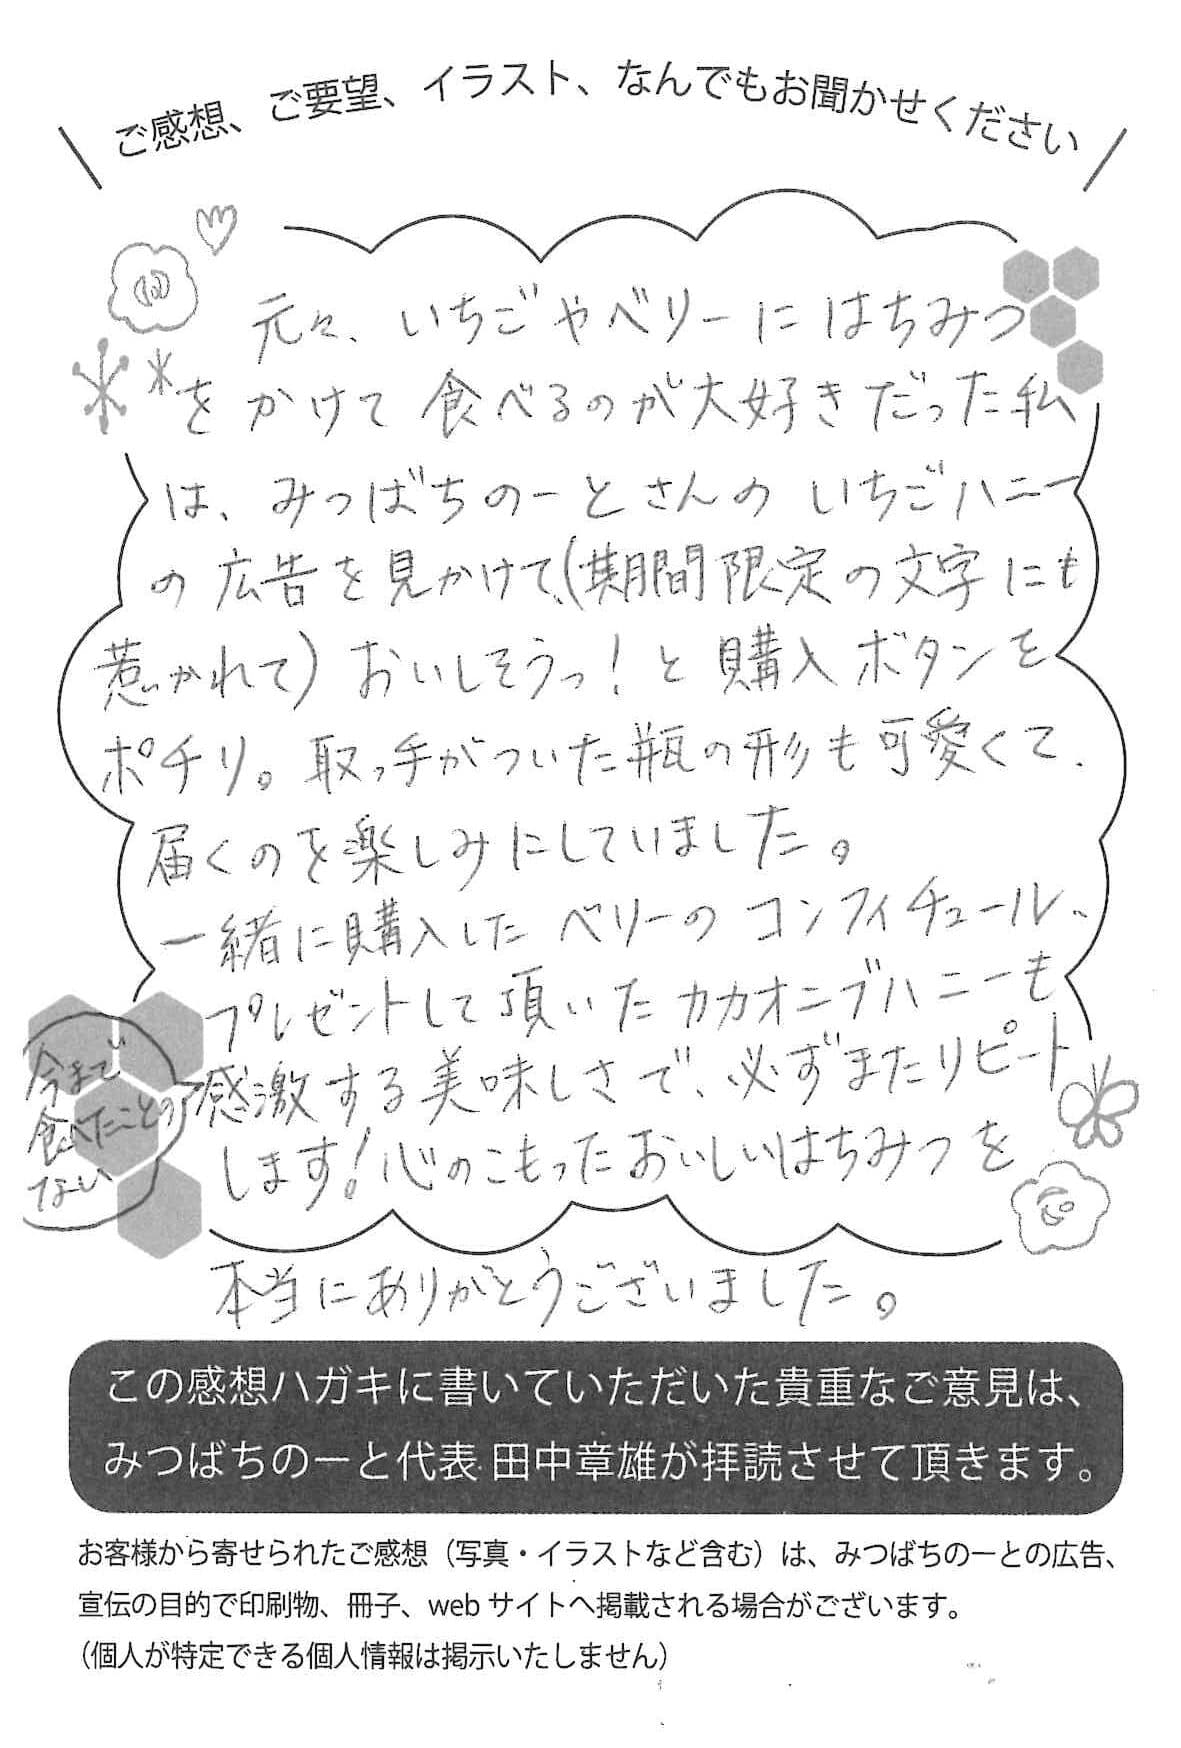 ご感想、ご要望、イラスト、なんでもお聞かせください
元々、いちごやベリーにはちみつ
をかけて食べるのが大好きだった私
は、みつばちのーとさんのいちごハニー
の広告を見かけて、(期間限定の文字にも
惹かれて)おいしそうっ!と購入ボタンを
ポチリ。取っ手がついた瓶の形も可愛くて、
届くのを楽しみにしていました。
一緒に購入したベリーのコンフィチュール、
プレゼントして頂いたカカオニブハニーも
今まで
食べたことの
ない
感激する美味しさで、必ずまたリピート
します!心のこもったおいしいはちみつを
本当にありがとうございました。
この感想ハガキに書いていただいた貴重なご意見は、
みつばちのーと代表 田中章雄が拝読させて頂きます。
お客様から寄せられたご感想（写真・イラストなど含む）は、みつばちのーとの広告、
宣伝の目的で印刷物、冊子、webサイトへ掲載される場合がございます。
（個人が特定できる個人情報は掲示いたしません）